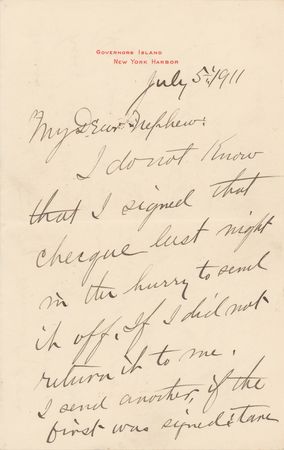 Governors Island
New York Harbor
July 5th, 1911
My Dear Nephew:
I do not Know
that I signed that
cheque last night
in the hurry to send
it off. If I did not
return it to me.
I send another, if the
first was signed: tare